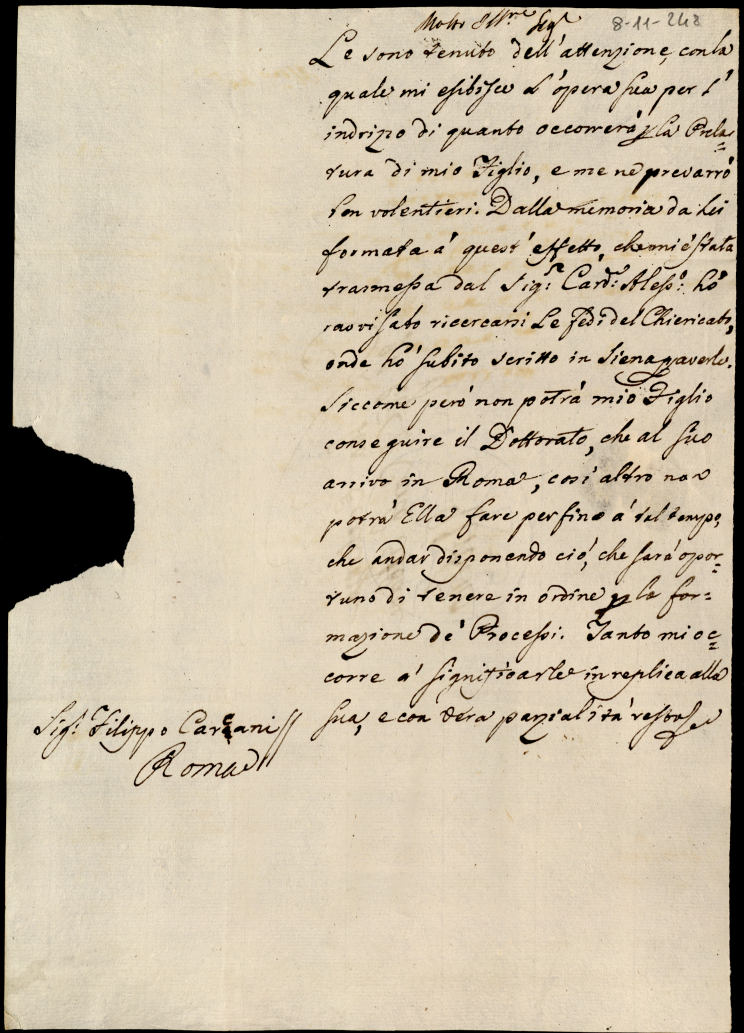 Molto Ill.re Sig.r
8-11-248
Le sono tenuto dell'attenzione, con la
quale mi esibisce l'opera sua per l'
indrizo di quanto occorrerà p la Prela=
tura di mio Figlio, e me ne prevarrò
ben volentieri. Dalla memoria da Lei
formata à quest'effetto, che mi è stata
trasmessa dal Sig.r Card.l Aless.o hò
ravvisato ricercarsi le fedi del Chiericato,
onde hò subito scritto in Siena p averle.
Siccome però non potrà mio Figlio
conseguire il Dottorato, che al suo
arrivo in Roma, così altro non
potrà Ella fare perfino à tal tempo,
che andar disponendo ciò, che sarà opor=
tuno di tenere in ordine p la for=
mazione de' Processi. Tanto mi oc=
corre à significarle in replica alla
sua, e con vera parzialità resto
Sig.r Filippo Carcani
Roma